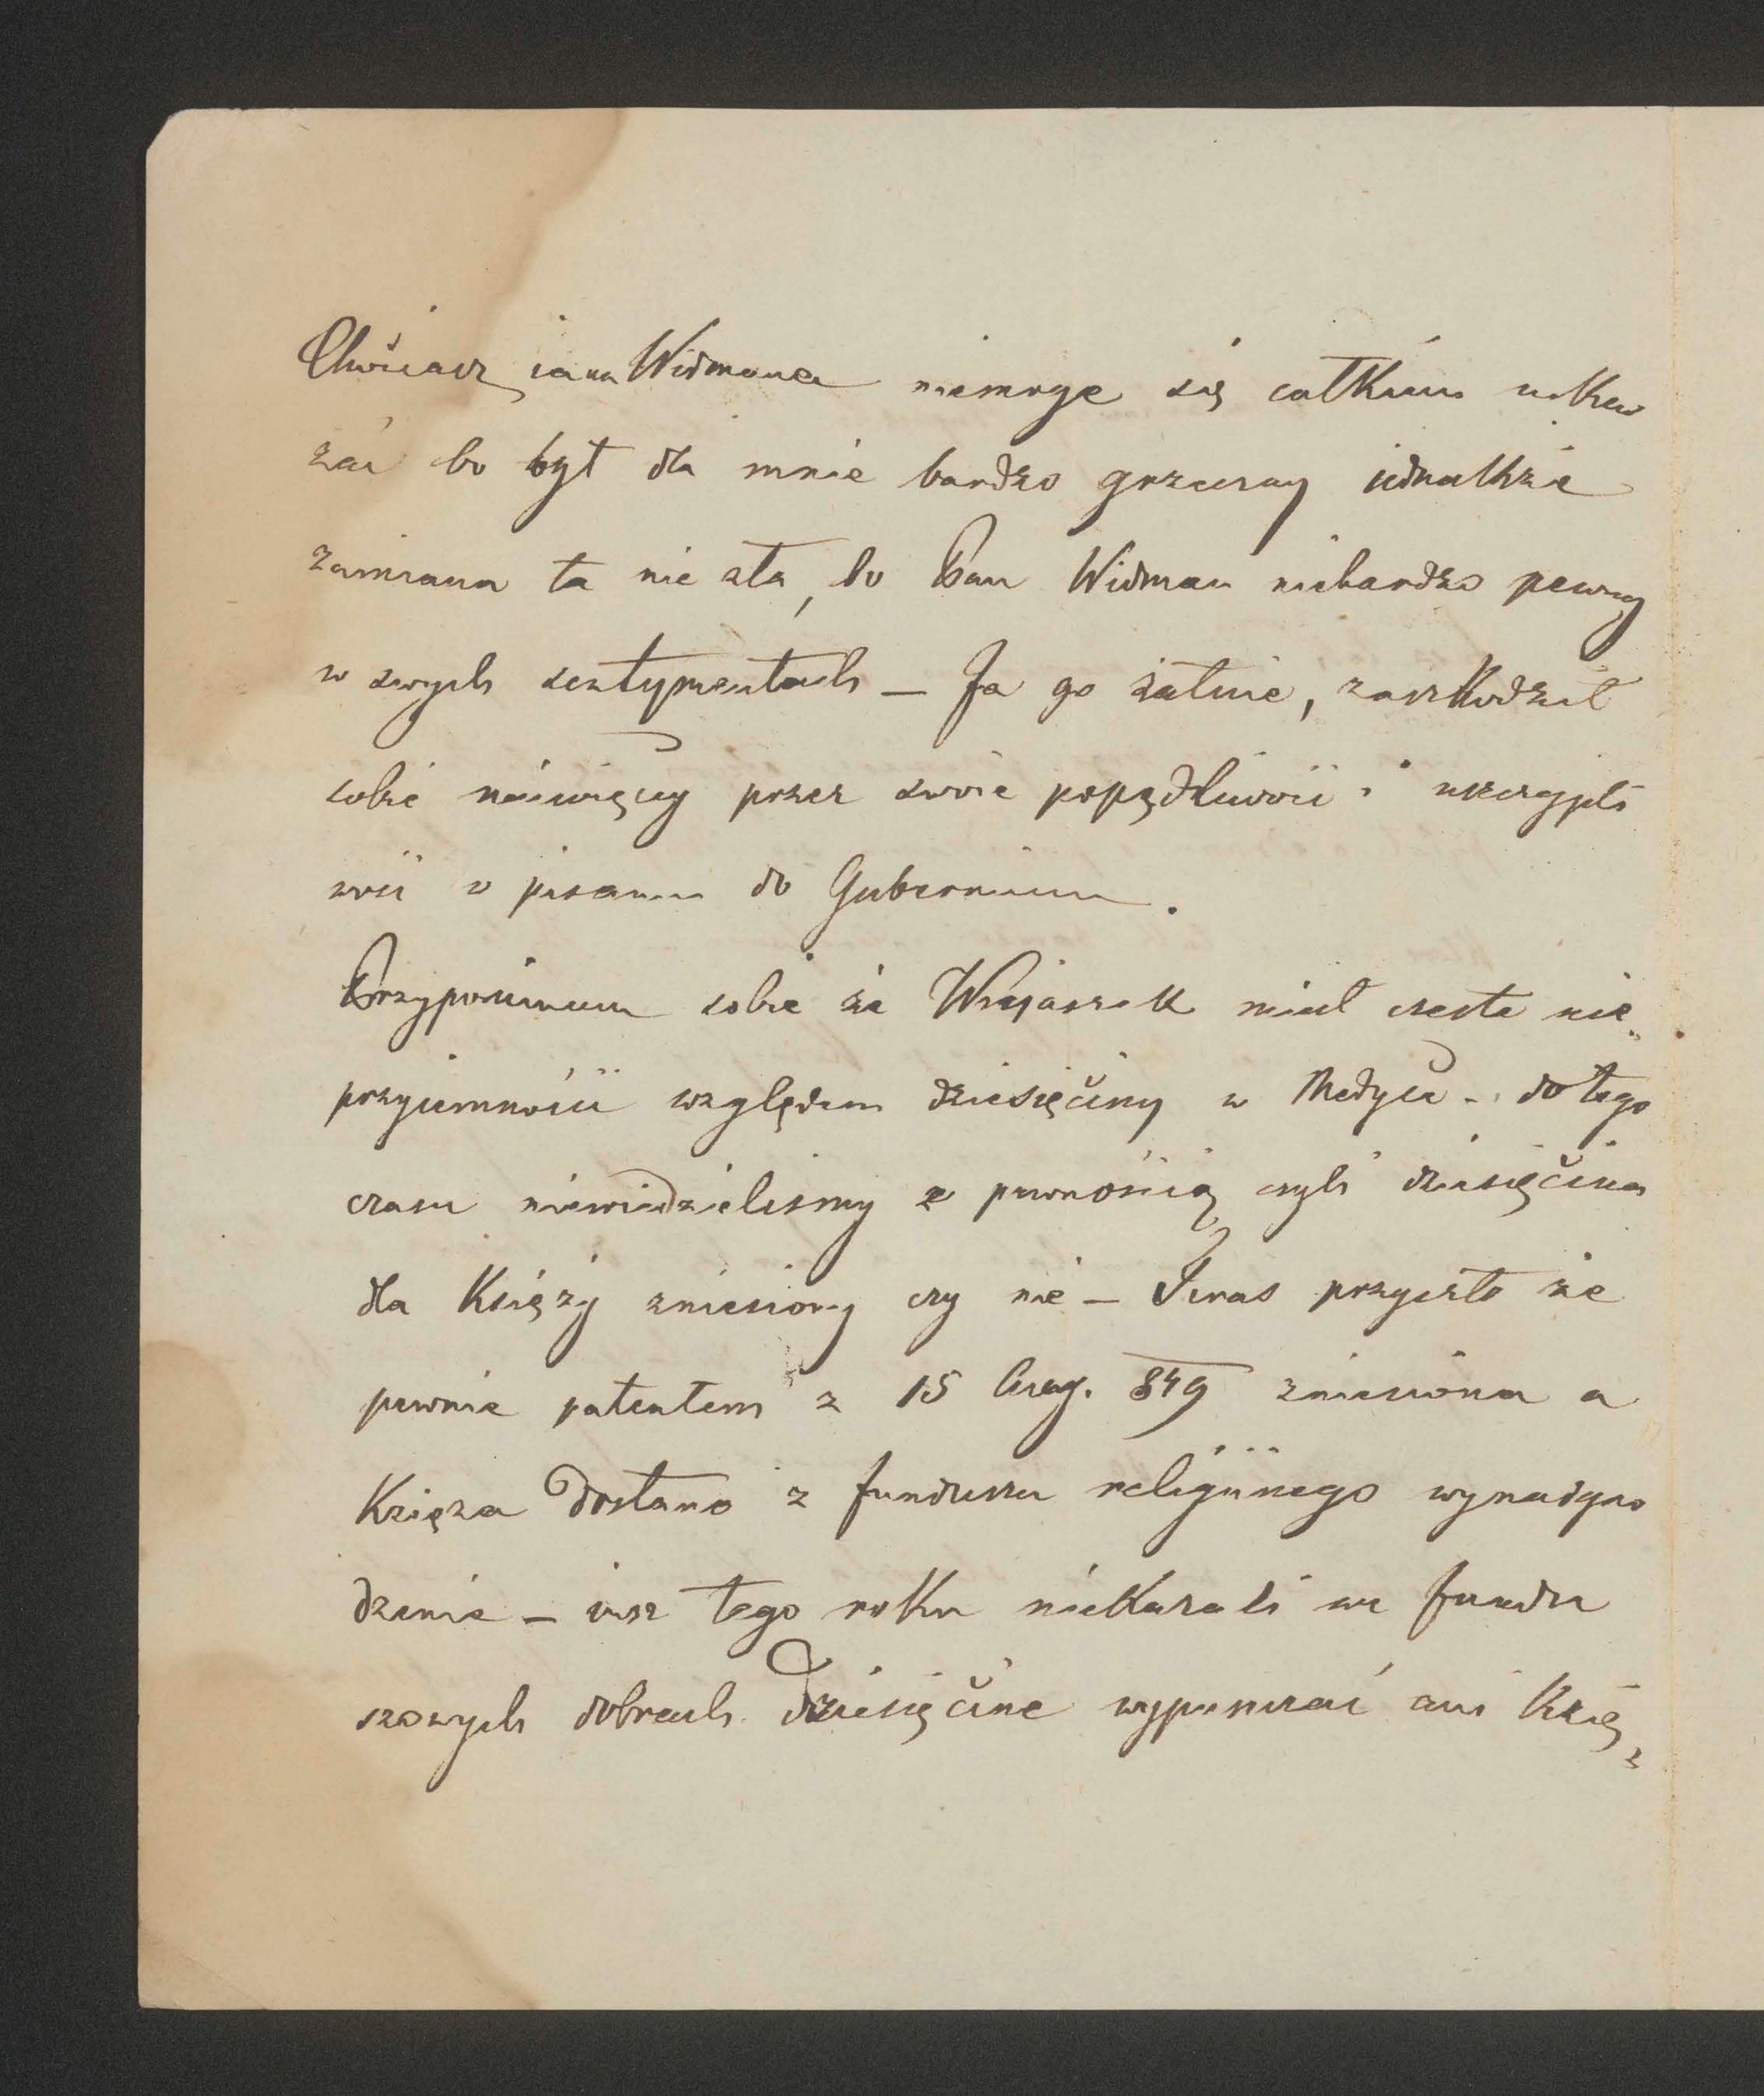 Chociasz ia na Widmana niemoge się całkiem uskar
zać bo był dla mnie bardzo grzeczny iednakże
zamiana ta nie zła, bo Pan Widman niebardzo pewny
w swych sentymentach — Ja go żałuie, zaszkodził
sobie náiwięcy przez swoie popędliwość i uszczypli
wość w pisaniu do Gubernium.
Przypominam sobie że Wnijaszek miał czeste nie„
przyiemności względem dziesięciny w Medyce - do tego
czasu niewiedzieliśmy z pewnością czyli dziesięcina
dla Księży zniesiony czy nie — Teraz przyszło że
pewnie patentem z 15 Aug. 849 zniesiona a
Księża dostano z funduszu religiinego wynadgro
dzenie — iusz tego roku niekazali na fundu
szowych dobrach Dziesięcine wypuszczać ani Księ„